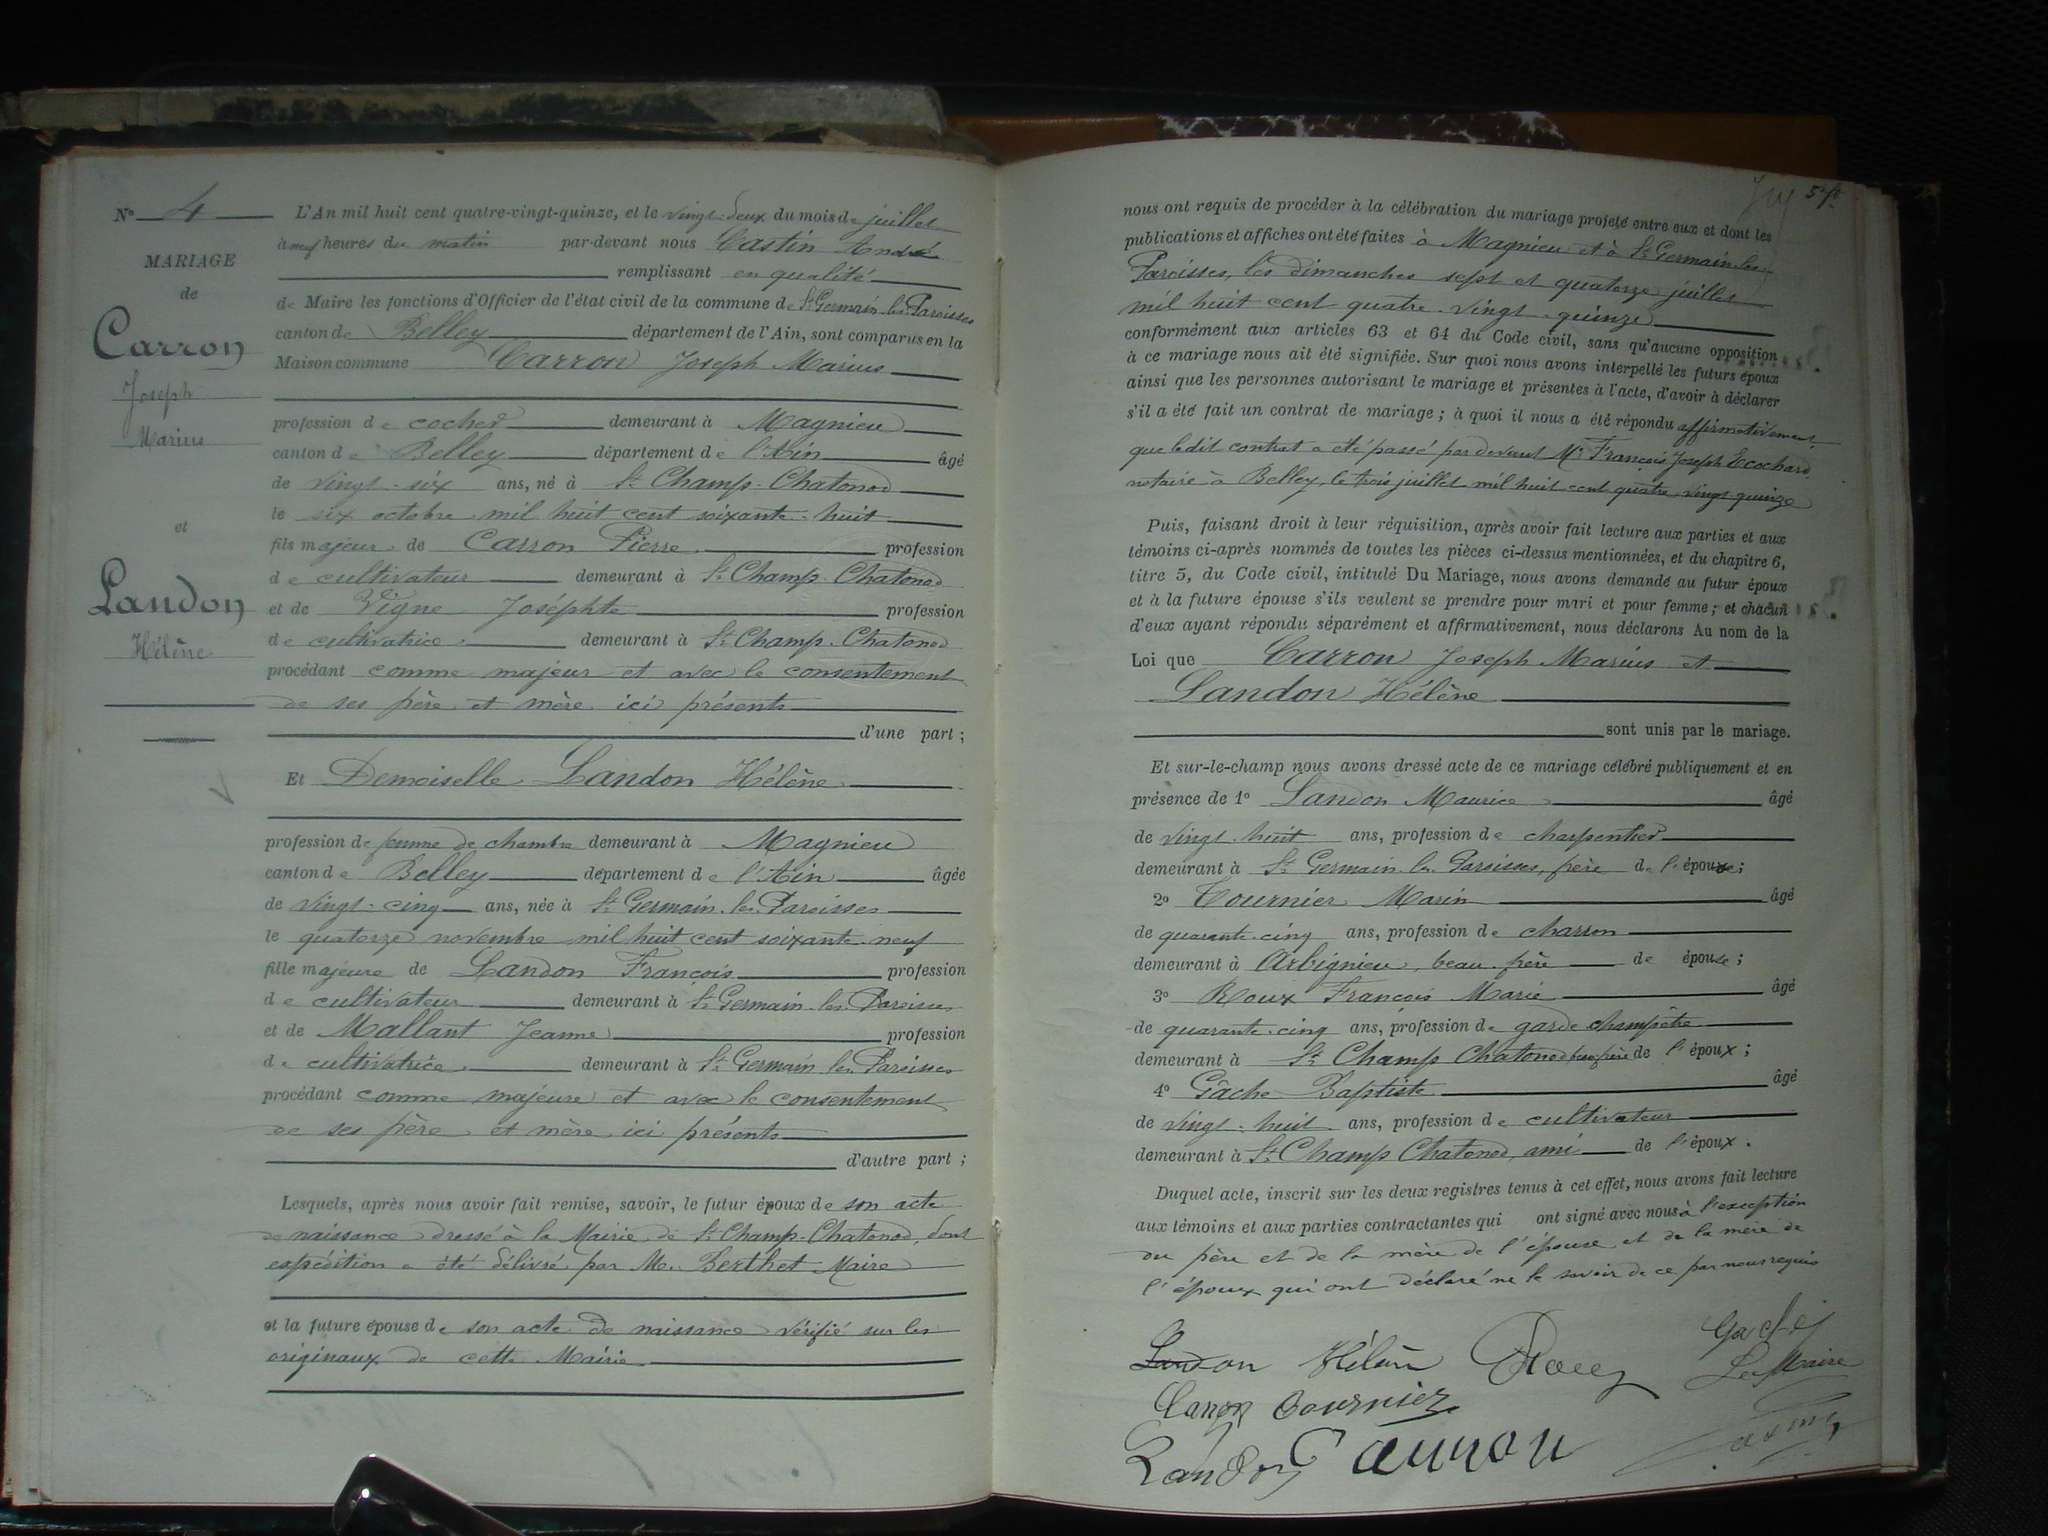 N° 4
MARIAGE
de
Carron
Joseph
Marius
et
Landon
Hélène
L'An mil huit cent quatre-vingt-quinze, et le vingt-deux du mois de juillet
à neuf heures du matin par-devant nous Castin André
remplissant en qualité
de Maire les fonctions d'Officier de l'état civil de la commune de St Germain-les-Paroisses
canton de Belley département de l'Ain, sont comparus en la
Maison commune Carron Joseph Marius
profession de cocher demeurant à Magnieu
canton de Belley département de l'Ain âgé
de vingt-six ans, né à St Champ-Chatonod
le six octobre mil huit cent soixante-huit
fils majeur de Carron Pierre profession
de cultivateur demeurant à St Champ-Chatonod
et de Vigne Joséphte profession
de cultivatrice demeurant à St Champ-Chatonod
procédant comme majeur et avec le consentement
de ses père et mère ici présents
d'une part ;
Et Demoiselle Landon Hélène
profession de femme de chambre demeurant à Magnieu
canton de Belley département de l'Ain âgée
de vingt-cinq ans, née à St Germain-les-Paroisses
le quatorze novembre mil huit cent soixante-neuf
fille majeure de Landon François profession
de cultivateur demeurant à St Germain-les-Paroisses
et de Mallant Jeanne profession
de cultivatrice demeurant à St Germain-les-Paroisses
procédant comme majeure et avec le consentement
de ses père et mère ici présents
d'autre part ;
Lesquels, après nous avoir fait remise, savoir, le futur époux de son acte
de naissance dressé à la Mairie de St Champ-Chatonod, dont
expédition a été délivré par M. Berthet Maire
et la future épouse de son acte de naissance vérifié sur les
originaux de cette Mairie
nous ont requis de procéder à la célébration du mariage projeté entre eux et dont les
publications et affiches ont été faites à Magnieu et à St Germain-les-
Paroisses, les dimanches sept et quatorze juillet
mil huit cent quatre-vingt-quinze
conformément aux articles 63 et 64 du Code civil, sans qu'aucune opposition
à ce mariage nous ait été signifiée. Sur quoi nous avons interpellé les futurs époux
ainsi que les personnes autorisant le mariage et présentes à l'acte, d'avoir à déclarer
s'il a été fait un contrat de mariage ; à quoi il nous a été répondu affirmativement
que ledit contrat a été passé par devant Me François Joseph Ecochard
notaire à Belley, le trois juillet mil huit cent quatre-vingt-quinze
Puis, faisant droit à leur réquisition, après avoir fait lecture aux parties et aux
témoins ci-après nommés de toutes les pièces ci-dessus mentionnées, et du chapitre 6,
titre 5, du Code civil, intitulé Du Mariage, nous avons demandé au futur époux
et à la future épouse s'ils veulent se prendre pour mari et pour femme ; et chacun
d'eux ayant répondu séparément et affirmativement, nous déclarons Au nom de la
Loi que Carron Joseph Marius et
Landon Hélène
sont unis par le mariage.
Et sur-le-champ nous avons dressé acte de ce mariage célébré publiquement et en
présence de 1° Landon Maurice âgé
de vingt-huit ans, profession de charpentier
demeurant à St Germain-les-Paroisses, frère de l'épouse ;
2° Tournier Marin âgé
de quarante-cinq ans, profession de charron
demeurant à Arbignieu, beau-frère de épouse ;
3° Roux François Marie âgé
de quarante-cinq ans, profession de garde champêtre
demeurant à St Champ Chatonod beau frère de l'époux ;
4° Gâche Baptiste âgé
de vingt-huit ans, profession de cultivateur
demeurant à St Champ Chatonod, ami de l'époux.
Duquel acte, inscrit sur les deux registres tenus à cet effet, nous avons fait lecture
aux témoins et aux parties contractantes qui ont signé avec nous à l'exception
du père et de la mère de l'épouse et de la mère de
l'époux qui ont déclaré ne le savoir de ce par nous requis
Landon Hélène Roux Gache
Le Maire
Carron Tournier
Castin
Landon Carron